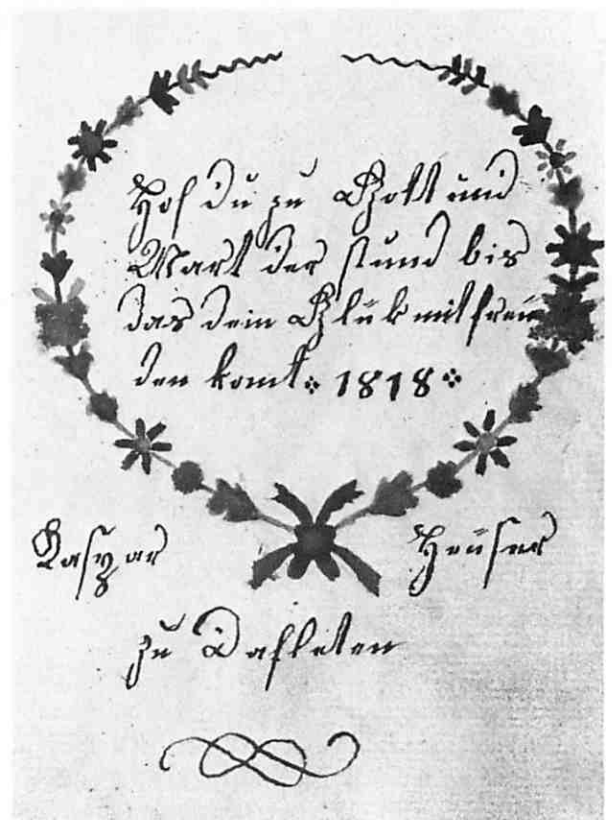 Hof du zu Gott und
Wart der stund bis
das dein Glük mit freü
den komt 1818
Casper Heüser
zu Dafleten